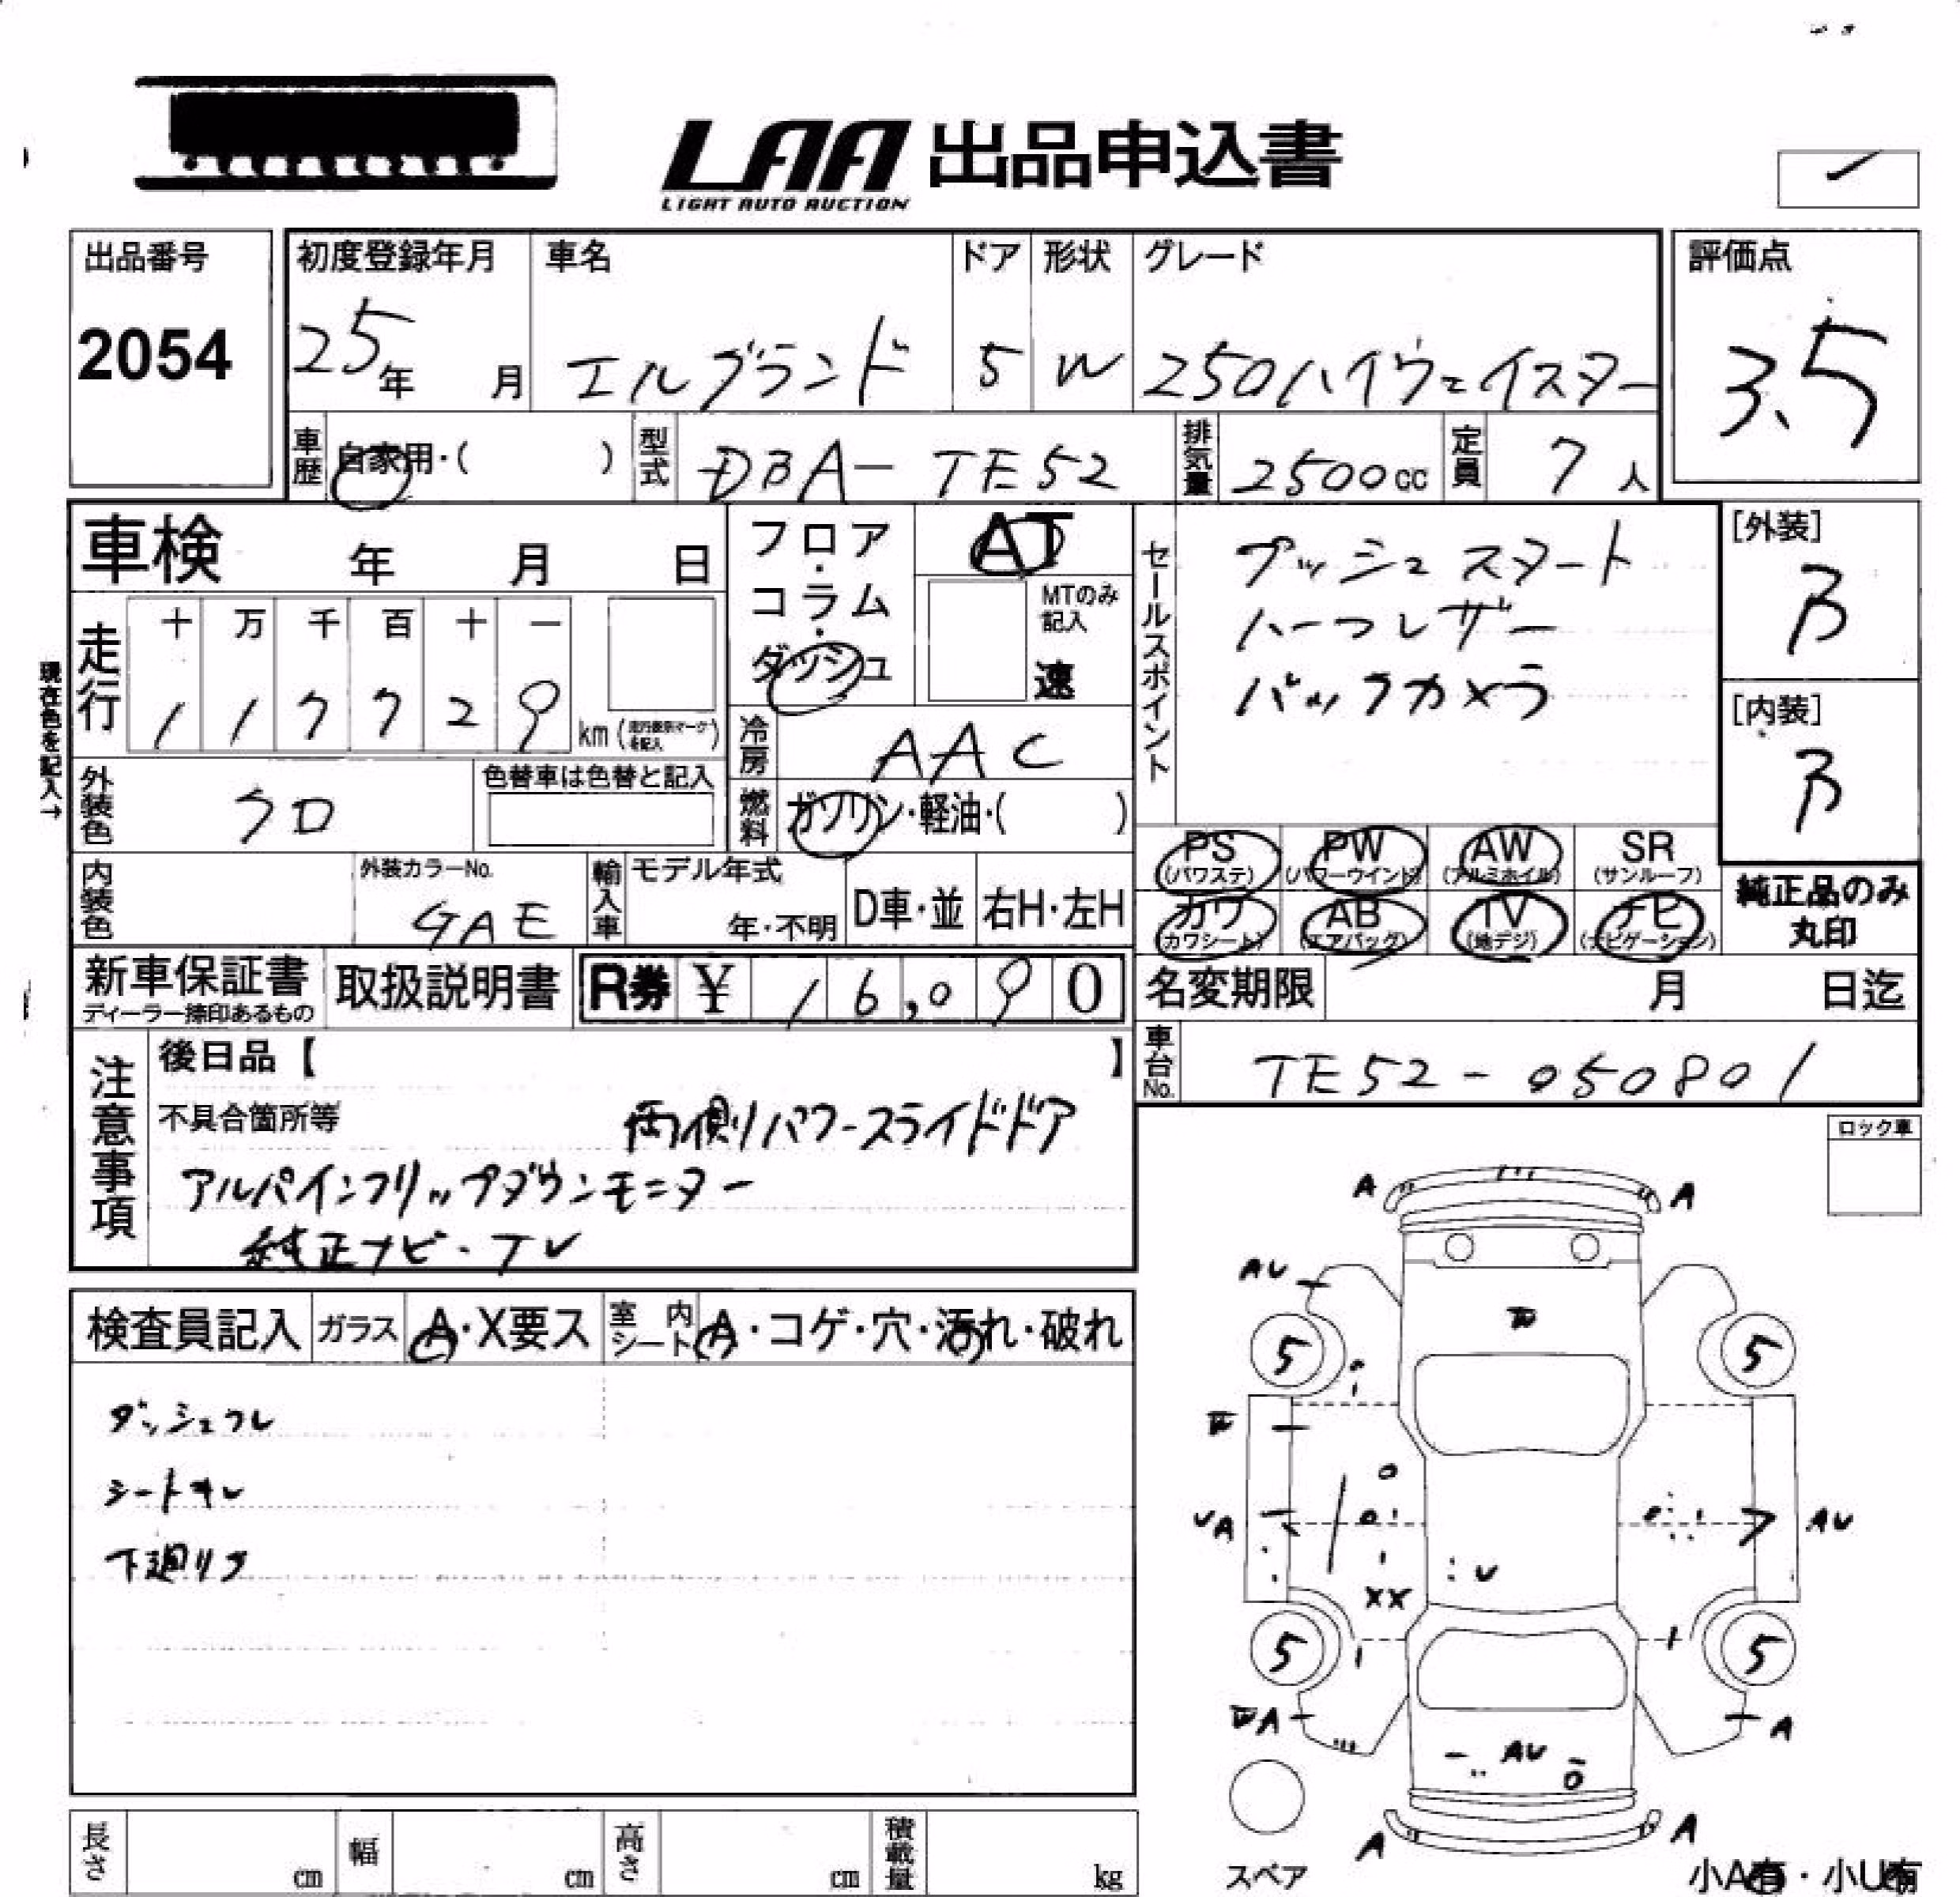 LAA 出品申込書
LIGHT AUTO AUCTION
出品番号
2054
初度登録年月
25年 月
車名
エルグランド
ドア
5
形状
W
グレード
250ハイウェイスター
評価点
3.5
車歴 自家用・( )
型式 DBA-TE52
排気量 2500cc
定員 7人
車検 年 月 日
フロア・コラム・ダッシュ
AT
MTのみ記入
速
セールスポイント
プッシュスタート
ハーフレザー
バックカメラ
[外装]
B
[内装]
B
現在色を記入→
走行
十 万 千 百 十 一
1 1 7 7 2 9
km
冷房 AAC
外装色 クロ
色替車は色替と記入
燃料 ガソリン・軽油・( )
PS (パワステ)
PW (パワーウインド)
AW (アルミホイル)
SR (サンルーフ)
カワ (カワシート)
AB (エアバッグ)
TV (地デジ)
ナビ (ナビゲーション)
純正品のみ
丸印
内装色
外装カラーNo.
GAE
輸入車
モデル年式
年・不明
D車・並
右H・左H
新車保証書
ディーラー捺印あるもの
取扱説明書
R券 ¥ 16,090
名変期限 月 日迄
車台No. TE52-050801
注意事項
後日品【 】
不具合箇所等
両側パワースライドドア
アルパインフリップダウンモニター
純正ナビ・TV
ロック車
検査員記入
ガラス A・X要ス
室内シート A・コゲ・穴・汚れ・破れ
ダッシュフレ
シートキレ
下廻りサ
A A
AU
5 5
UA AU
XX
U
5 5
A A
AU
A A
スペア
小A有・小U有
長さ cm
幅 cm
高さ cm
積載量 kg